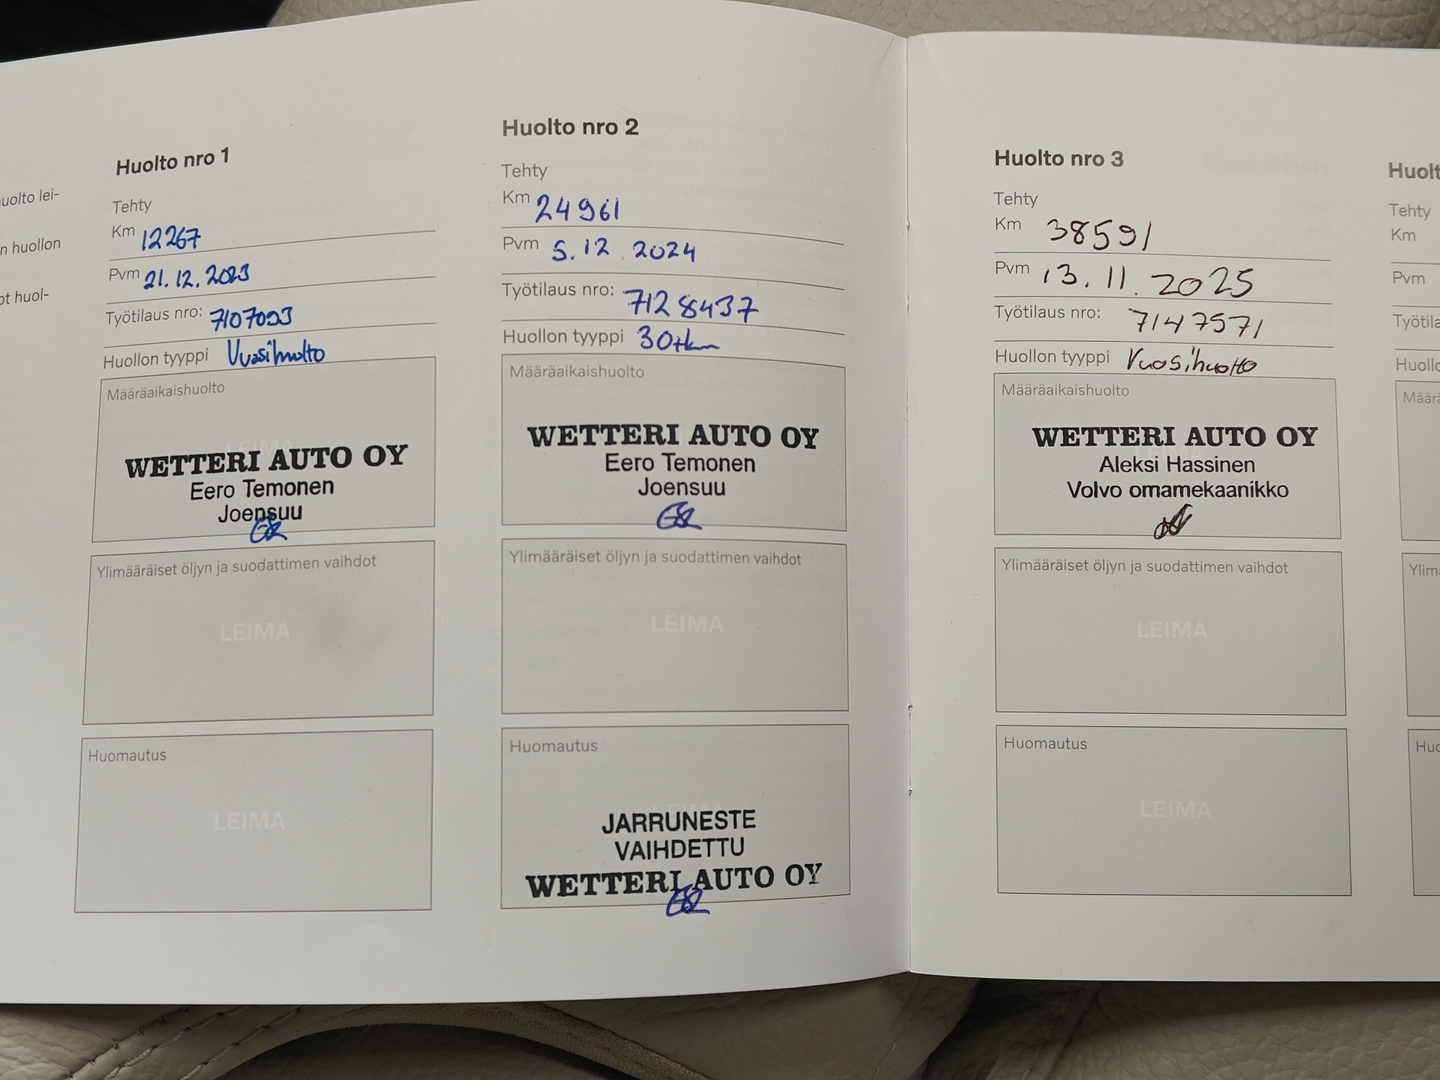 huolto lei-
n huollon
ot huol-
Huolto nro 1
Tehty
Km 12267
Pvm 21.12.2023
Työtilaus nro: 7107093
Huollon tyyppi Vuosihuolto
Määräaikaishuolto
WETTERI AUTO OY
Eero Temonen
Joensuu
Ylimääräiset öljyn ja suodattimen vaihdot
LEIMA
Huomautus
LEIMA
Huolto nro 2
Tehty
Km 24961
Pvm 5.12.2024
Työtilaus nro: 7128437
Huollon tyyppi 30tkm
Määräaikaishuolto
WETTERI AUTO OY
Eero Temonen
Joensuu
Ylimääräiset öljyn ja suodattimen vaihdot
LEIMA
Huomautus
JARRUNESTE
VAIHDETTU
WETTERI AUTO OY
Huolto nro 3
Tehty
Km 38591
Pvm 13.11.2025
Työtilaus nro: 7147571
Huollon tyyppi Vuosihuolto
Määräaikaishuolto
WETTERI AUTO OY
Aleksi Hassinen
Volvo omamekaanikko
Ylimääräiset öljyn ja suodattimen vaihdot
LEIMA
Huomautus
LEIMA
Huolt
Tehty
Km
Pvm
Työtila
Huollo
Määrä
Ylim
Huo